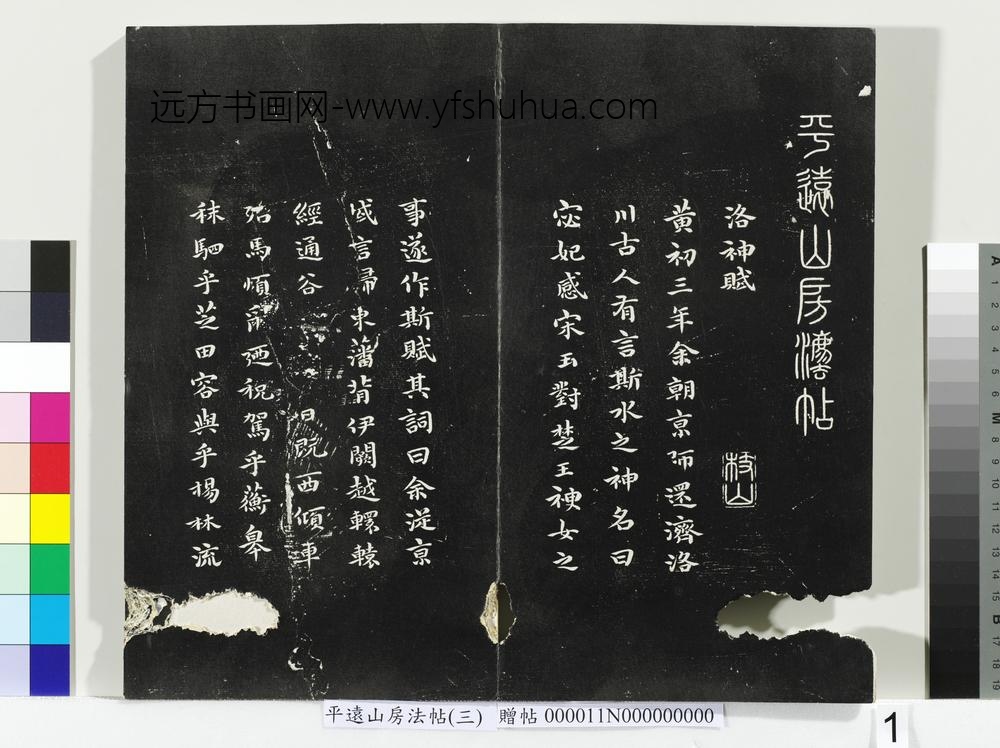 远方书画网-www.yfshuhua.com
平遠山房灋帖
洛神賦
枝山
黄初三年余朝京師還濟洛
川古人有言斯水之神名曰
宓妃感宋玉對楚王神女之
事遂作斯賦其詞曰余從京
域言歸東藩背伊闕越轘轅
經通谷 日既西傾車
殆馬煩爾迺税駕乎蘅皋
秣駟乎芝田容與乎楊林流
平遠山房法帖(三) 贈帖 000011N000000000
1